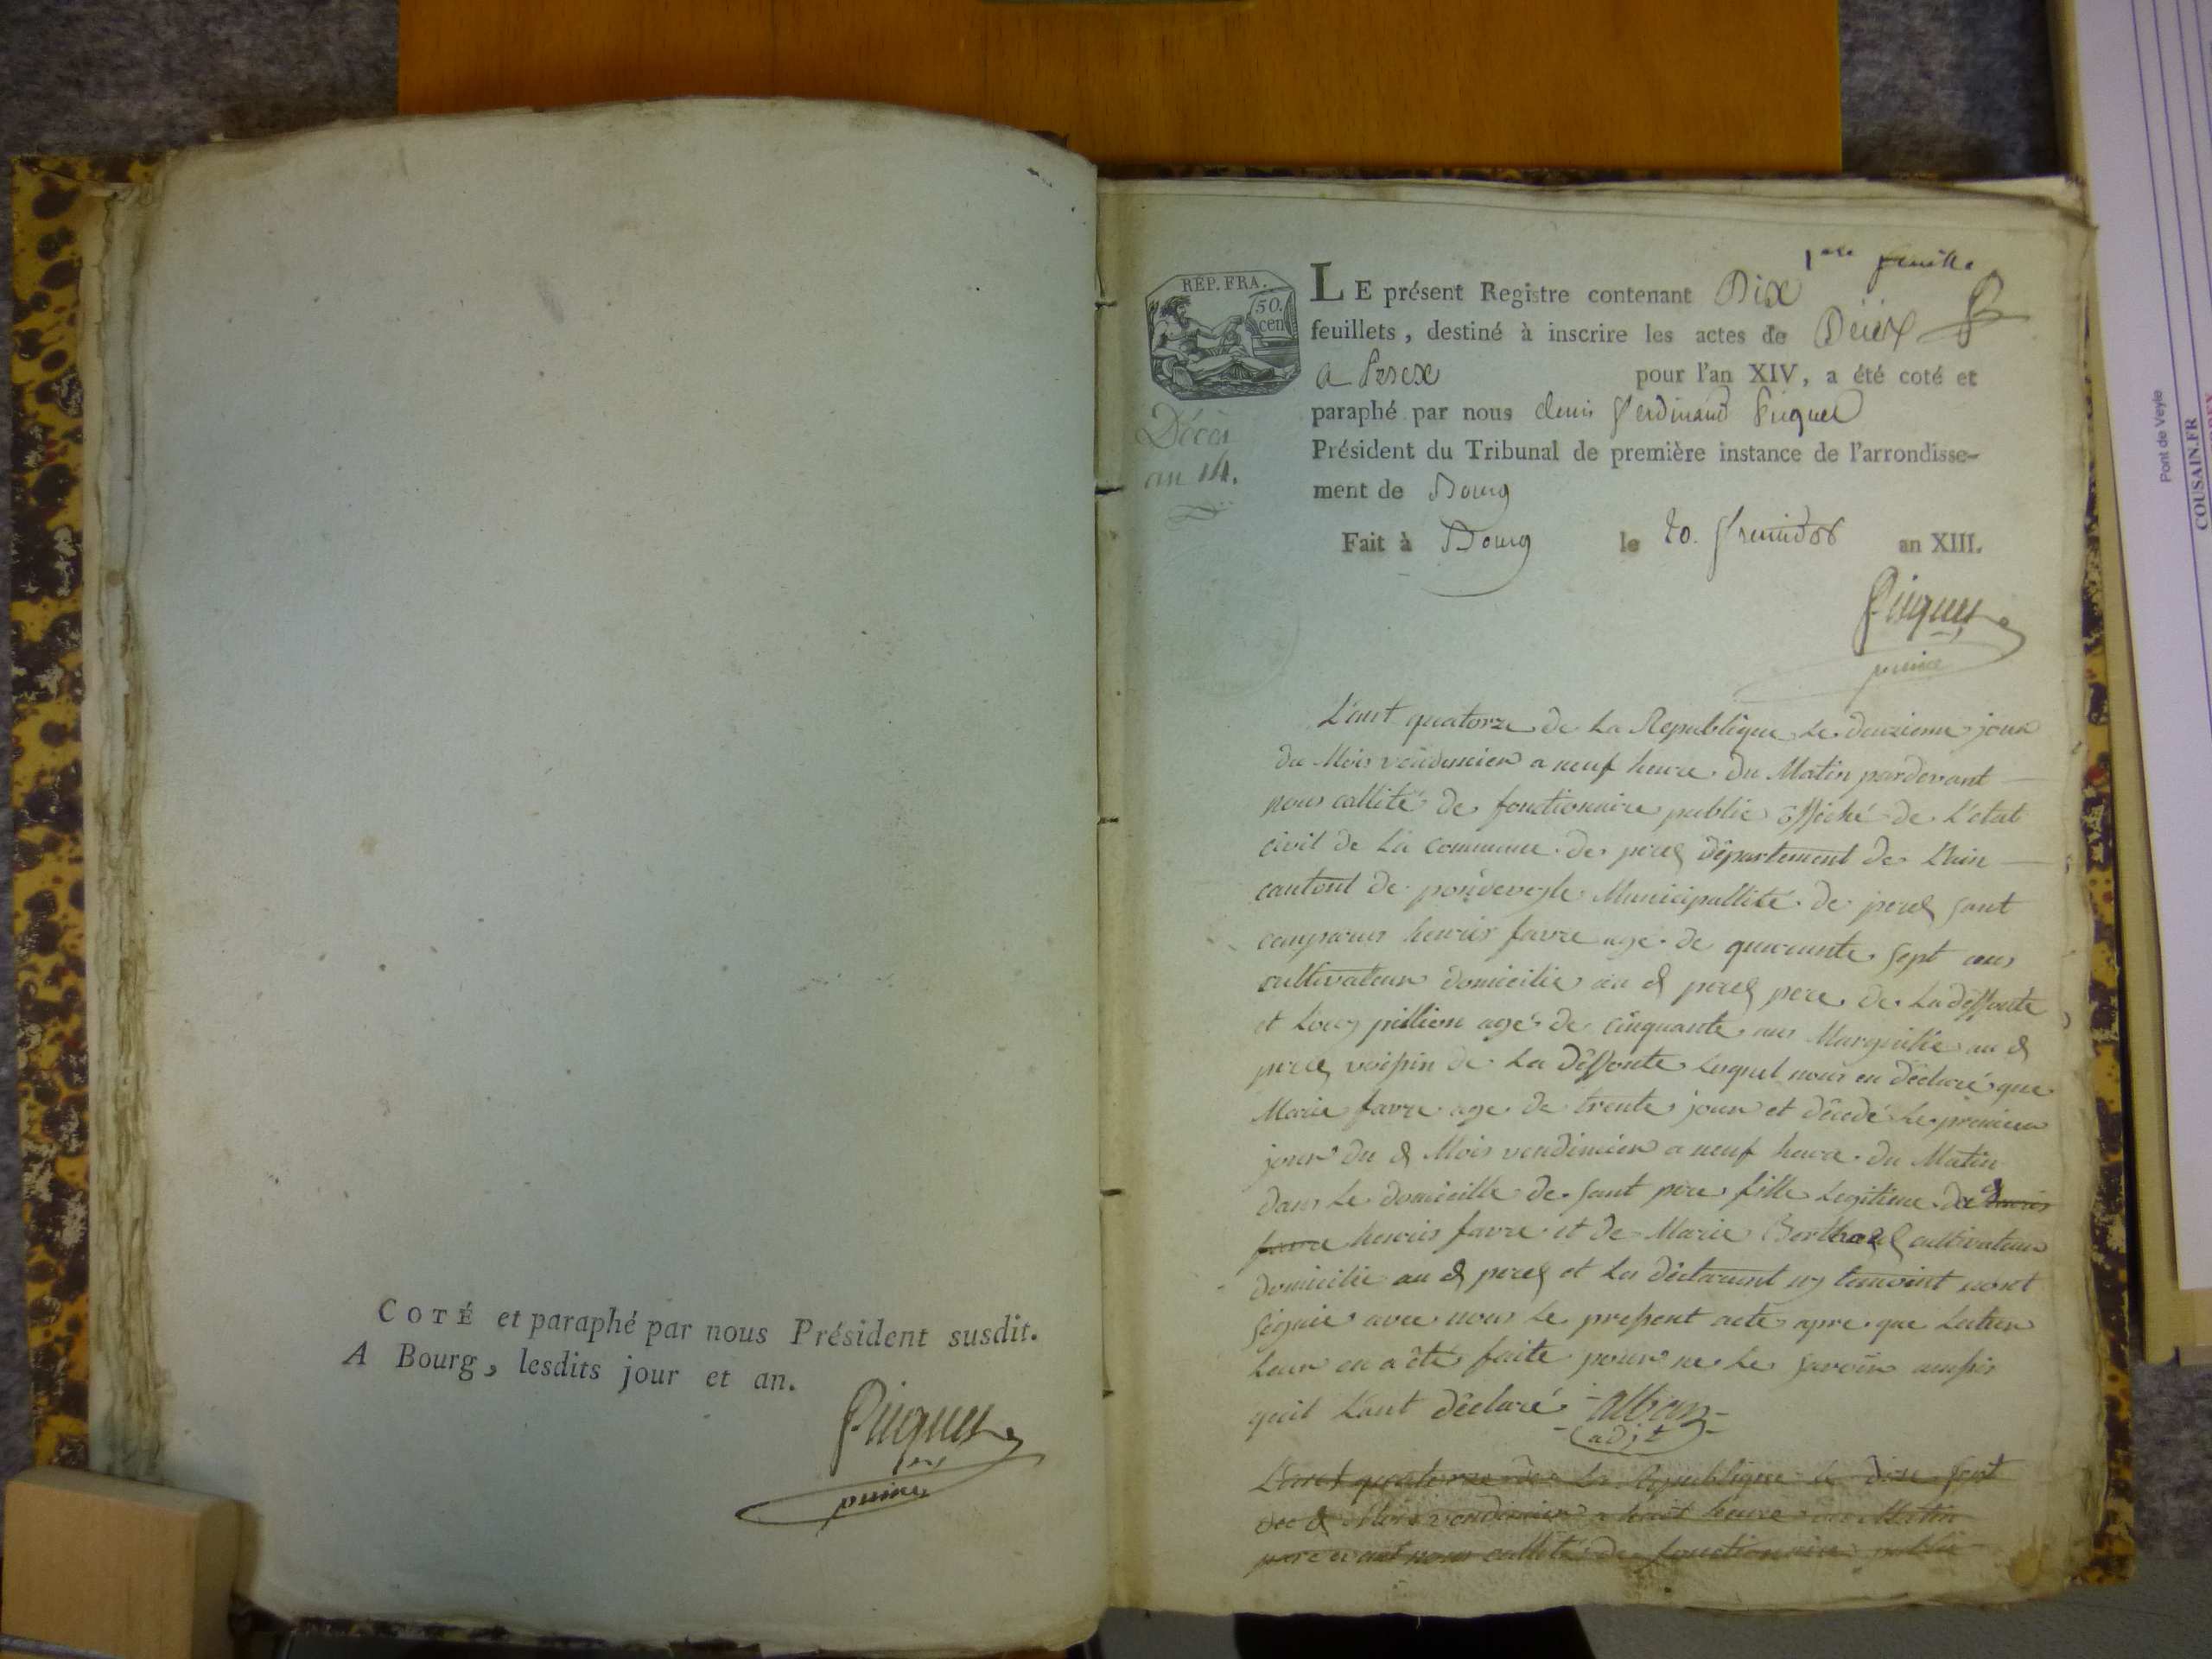 COTÉ et paraphé par nous Président susdit.
A Bourg, lesdits jour et an.
1ere feuille
REP. FRA.
50.
cen
LE présent Registre contenant Dix
feuillets, destiné à inscrire les actes de
a Perex pour l'an XIV, a été coté et
paraphé par nous denis ferdinand Picquet
Président du Tribunal de première instance de l'arrondisse-
ment de Bourg
Fait à Bourg le 20. fructidor an XIII.
Picquet
Décès
an 14.
L'ant quatorze de La Republique Le deuzieme jour
du Mois vendemier a neuf heure du Matin pardevant
nous callité de fonctionaire public de L'etat
civil de La commune de perex département de L'ain
cantont de Municipallité de perex sont
comparus henris favre age de quarante sept ans
cultivateur domicilie au d perex pere de La deffonte
et Louy pillion agé de cinquante ans Marguilié au d
perex voisin de La deffonte Lequel nous en déclaré que
Marie favre age de trente jour et décedé Le premier
jour du d Mois vendimier a neuf heure du Matin
dans Le domicille de sont père fille Legitime de
favre henris favre et de Marie cultivateur
domicilie au d perex et Les déclarant temoint
signie avec nous Le present acte apre que Lecture
Leur en a été faite pour ne Le savoir
quil L'ant déclaré alban
adjt
L'ant quatorze de La Republique Le dix sept
du d Mois vendimier a huit heure du Matin
pardevant nous callité de fonctionaire public
Pont de Veyle
COUSAIN.FR